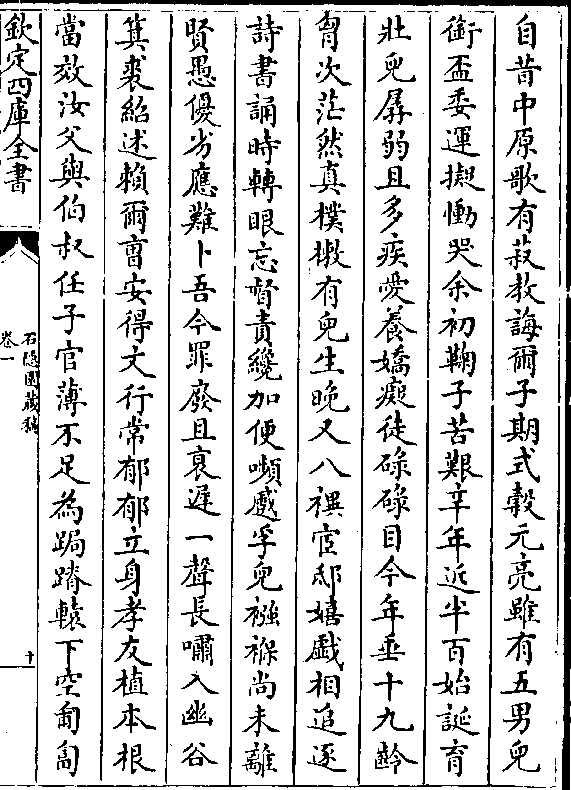 自昔中原歌有菽教誨爾子期式穀元亮雖有五男兒
銜盃委運擬慟哭余初鞠子苦艱辛年近半百始誕育
壯兒孱弱且多疾愛養嬌癡徒碌碌目今年垂十九齡
胷次茫然真樸樕有兒生晚又八禩宦邸嬉戲相追逐
詩書誦時轉眼忘督責纔加便嚬蹙孚兒襁褓尚未離
賢愚優劣應難卜吾今罪廢且衰遲一聲長嘯入幽谷
箕裘紹述賴爾曹安得文行常郁郁立身孝友植本根
當效汝父與伯叔任子官薄不足為跼蹐轅下空匍匐
欽定四庫全書
石隱園藏稿
卷一
十